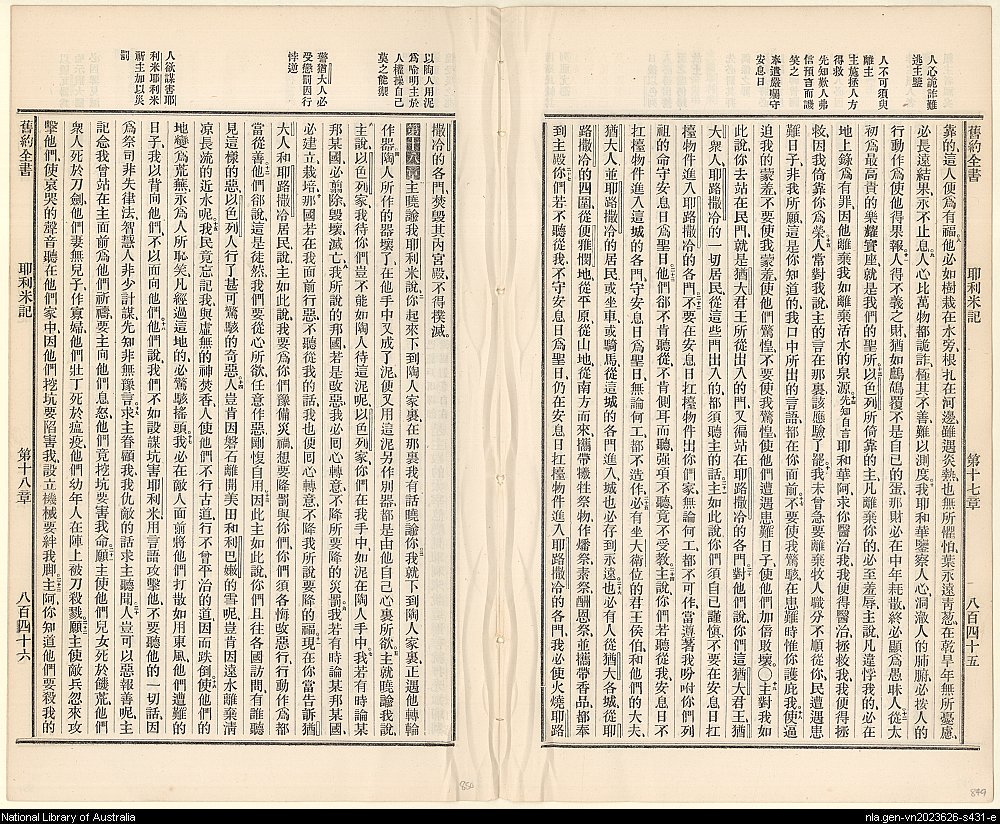 舊約全書 耶利米記 第十七章 八百四十五
人心詭詐難
逃主鑒
人不可須臾
離主
主施拯人方
得收
先知歎人弗
信預言而譏
笑之
奉遣嚴囑守
安息日
靠的這人便爲有福他必如樹栽在水旁根扎在河邊雖遇炎熱也無所懼怕葉永遠靑葱在乾旱年無所憂慮
必長遠結果永不止息人心比萬物都詭詐極其不善難以測度我耶和華鑒察人心洞澈人的肺腑必按人的
行動作爲使他得果報人得不義之財猶如鷓鴣覆不是自己的蛋那財必在中年耗散終必顯爲愚昧人從太
初爲最高貴的榮耀寶座就是我們的聖所以色列所倚靠的主凡離棄你的必至羞辱主說凡違悖我的必在
地上錄爲有罪因他離棄我如離棄活水的泉源先知自言耶和華阿求你醫治我我便得醫治拯救我我便得拯
救因我倚靠你爲榮人常對我說主的言在那裏該應驗了罷我未曾急要離棄牧人職分不順從你民遭遇患
難日子非我所願這是你知道的我口中所出的言語都在你面前不要使我驚駭在患難時惟你護庇我使逼
迫我的蒙羞不要使我蒙羞使他們驚惶不要使我驚惶使他們遭遇患難日子使他們加倍敗壞○主對我如
此說你去站在民門就是猶大君王所從出入的門又徧站在耶路撒冷的各門對他們說你們這猶大君王猶
大衆人耶路撒冷的一切居民從這些門出入的都須聽主的話主如此說你們須自己謹愼不要在安息日扛
檯物件進入耶路撒冷的各門不要在安息日扛檯物件出你們家無論何工都不可作當遵著我吩咐你們列
祖的命守安息日爲聖日他們卻不肯聽從不肯側耳而聽强項不聽竟不受敎主說你們若聽從我安息日不
扛檯物件進入這城的各門守安息日爲聖日無論何工都不造作必有坐大衛位的君王侯伯和他們的大夫
猶大人並耶路撒冷的居民或坐車或騎馬從這城的各門進入城也必存到永遠也必有人從猶大各城從耶
路撒冷的四圍從便雅憫地從平原從山地從南方而來攜帶犧牲祭物作燔祭素祭酬恩祭並攜帶香品都奉
到主殿你們若不聽從我不守安息日爲聖日仍在安息日扛檯物件進入耶路撒冷的各門我必使火燒耶路
以陶人用泥
爲喩明主於
人權操自己
莫之能禦
警猶大人必
受懲罰因行
悖逆
人欲謀害耶
利米耶利米
祈主加以災
罰
撒冷的各門焚毀其內宮殿不得撲滅
第十八章主曉諭我耶利米說你起來下到陶人家裏在那裏我有話曉諭你我就下到陶人家裏正遇他轉輪
作器陶人所作的器壞了在他手中又成了泥便又用這泥另作別器都是由他自己心裏所欲主就曉諭我說
主說以色列家我待你們豈不能如陶人待這泥呢以色列家你們在我手中如泥在陶人手中我若有時論某
邦某國必翦除毀壞滅亡我所說的邦國若是改惡我必囘心轉意不降所要降的災罰我若有時論某邦某國
必建立栽培那國若在我面前行惡不聽從我的話我也便囘心轉意不降我所說要降的福現在你當告訴猶
大人和耶路撒冷居民說主如此說我要爲你們豫備災禍想要降罰與你們你們須各悔改惡行行動作爲都
當從善他們卻說這是徒然我們要從心所欲任意作惡剛愎自用因此主如此說你們且往各國訪問有誰聽
見這樣的惡以色列人行了甚可驚駭的奇惡人豈肯因磐石離開美田和利巴嫩的雪呢豈肯因遠水離棄淸
凉長流的近水呢我民竟忘記我與虛無的神焚香人使他們不行古道行不曾平治的道因而跌倒使他們的
地變爲荒蕪永爲人所恥笑凡經過這地的必驚駭搖頭我必在敵人面前將他們打散如用東風他們遭難的
日子我以背向他們不以面向他們他們說我們不如設謀坑害耶利米用言語攻擊他不要聽他的一切話因
爲祭司非失律法智慧人非少計謀先知非無豫言求主眷顧我我仇敵的話求主聽聞人豈可以惡報善呢主
記念我曾站在主面前爲他們祈禱要主向他們息怒他們竟挖坑要害我命願主使他們兒女死於饑荒他們
衆人死於刀劍他們妻無兒子作寡婦他們壯丁死於瘟疫他們幼年人在陣上被刀殺戮願主使敵兵忽來攻
擊他們使哀哭的聲音聽在他們家中因他們挖坑要陷害我設立機械要絆我脚主阿你知道他們要殺我的
舊約全書 耶利米記 第十八章 八百四十六
850
849
National Library of Australia
nla.gen-vn2023626-s431-e